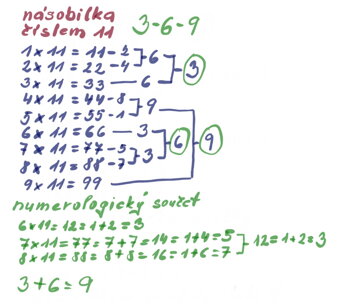 násobilka
číslem 11
3-6-9
1 x 11 = 11 - 2
2 x 11 = 22 - 4
6
3 x 11 = 33 — 6
3
4 x 11 = 44 - 8
5 x 11 = 55 - 1
9
6 x 11 = 66 — 3
7 x 11 = 77 - 5
8 x 11 = 88 - 7
3
6
9
9 x 11 = 99
numerologický součet
6 x 11 = 12 = 1 + 2 = 3
7 x 11 = 77 = 7 + 7 = 14 = 1 + 4 = 5
8 x 11 = 88 = 8 + 8 = 16 = 1 + 6 = 7
12 = 1 + 2 = 3
3 + 6 = 9